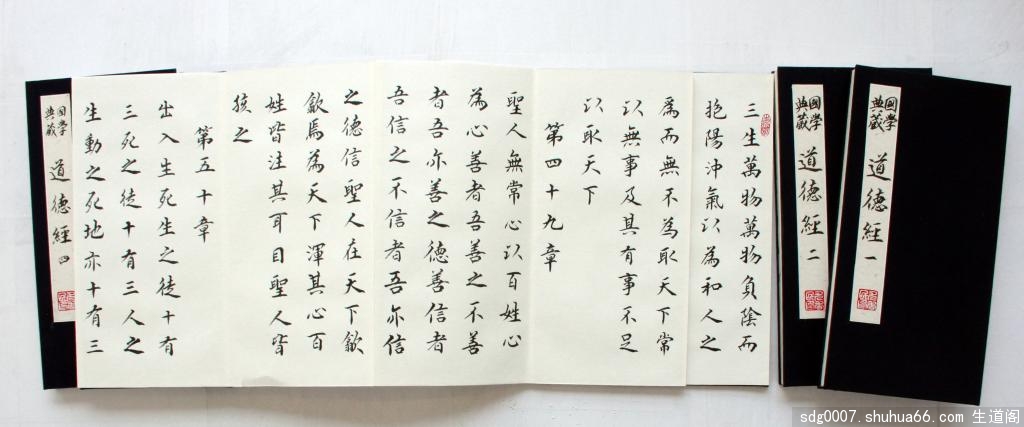 國學
典藏
道德經 一
國學
典藏
道德經 二
三生萬物萬物負陰而
抱陽沖氣以為和人之
為而無不為取天下常
以無事及其有事不足
以取天下
第四十九章
聖人無常心以百姓心
為心善者吾善之不善
者吾亦善之德善信者
吾信之不信者吾亦信
之德信聖人在天下歙
歙焉為天下渾其心百
姓皆注其耳目聖人皆
孩之
第五十章
出入生死生之徒十有
三死之徒十有三人之
生動之死地亦十有三
國學
典藏
道德經 四
sdg0007.shuhua66.com 生道阁